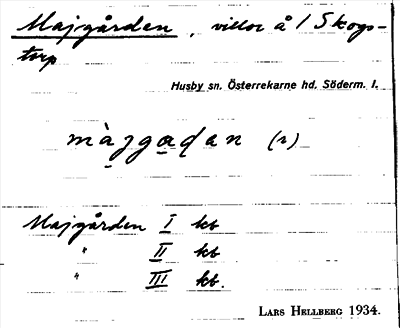 Majgården, villor å /Skogs-
torp
Husby sn. Österrekarne hd. Söderm. l.
màjgaɖan (r)
Majgården I kb
" II kb
" III kb.
LARS HELLBERG 1934.